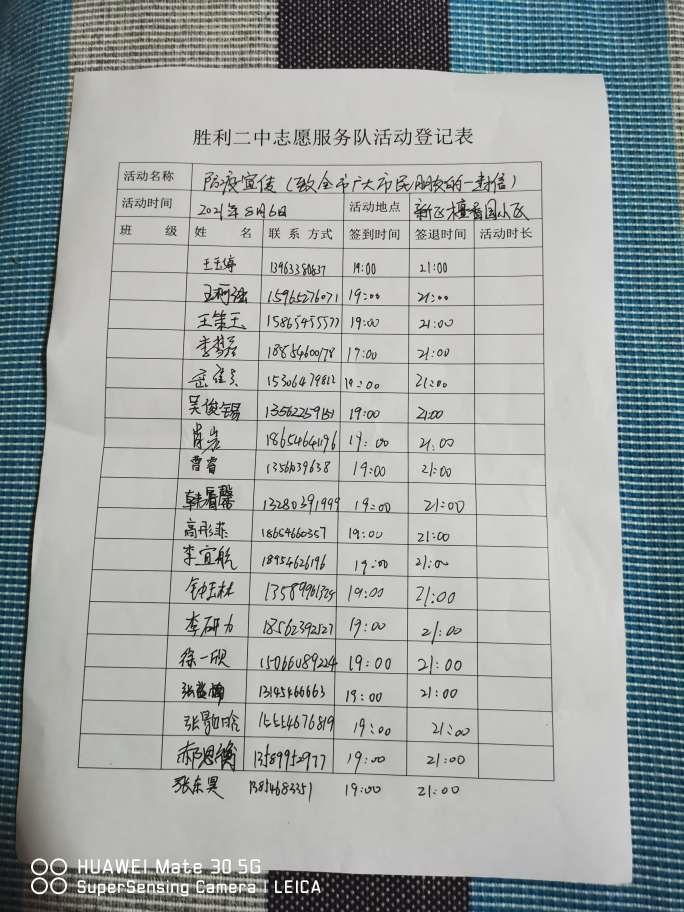 胜利二中志愿服务队活动登记表
活动名称 防疫宣传（致全市广大市民朋友的一封信）
活动时间 2021年8月6日 活动地点 新区檀香园小区
班 级 姓 名 联系方式 签到时间 签退时间 活动时长
13963380637 19:00 21:00
15965276071 19:00 21:00
王策玉 15865455577 19:00 21:00
18854600178 19:00 21:00
15306479812 19:00 21:00
吴俊锡 13562259151 19:00 21:00
肖岩 18654641196 19:00 21:00
曹睿 1356039638 19:00 21:00
韩馨 13280391999 19:00 21:00
高彤菲 18654660357 19:00 21:00
李宜航 18954626196 19:00 21:00
钟玉林 19:00 21:00
李研力 18562392527 19:00 21:00
徐一欣 15066089224 19:00 21:00
13145466663 19:00 21:00
15554676819 19:00 21:00
郝思衡 13589952977 19:00 21:00
张东昊 19:00 21:00
HUAWEI Mate 30 5G
SuperSensing Camera | LEICA